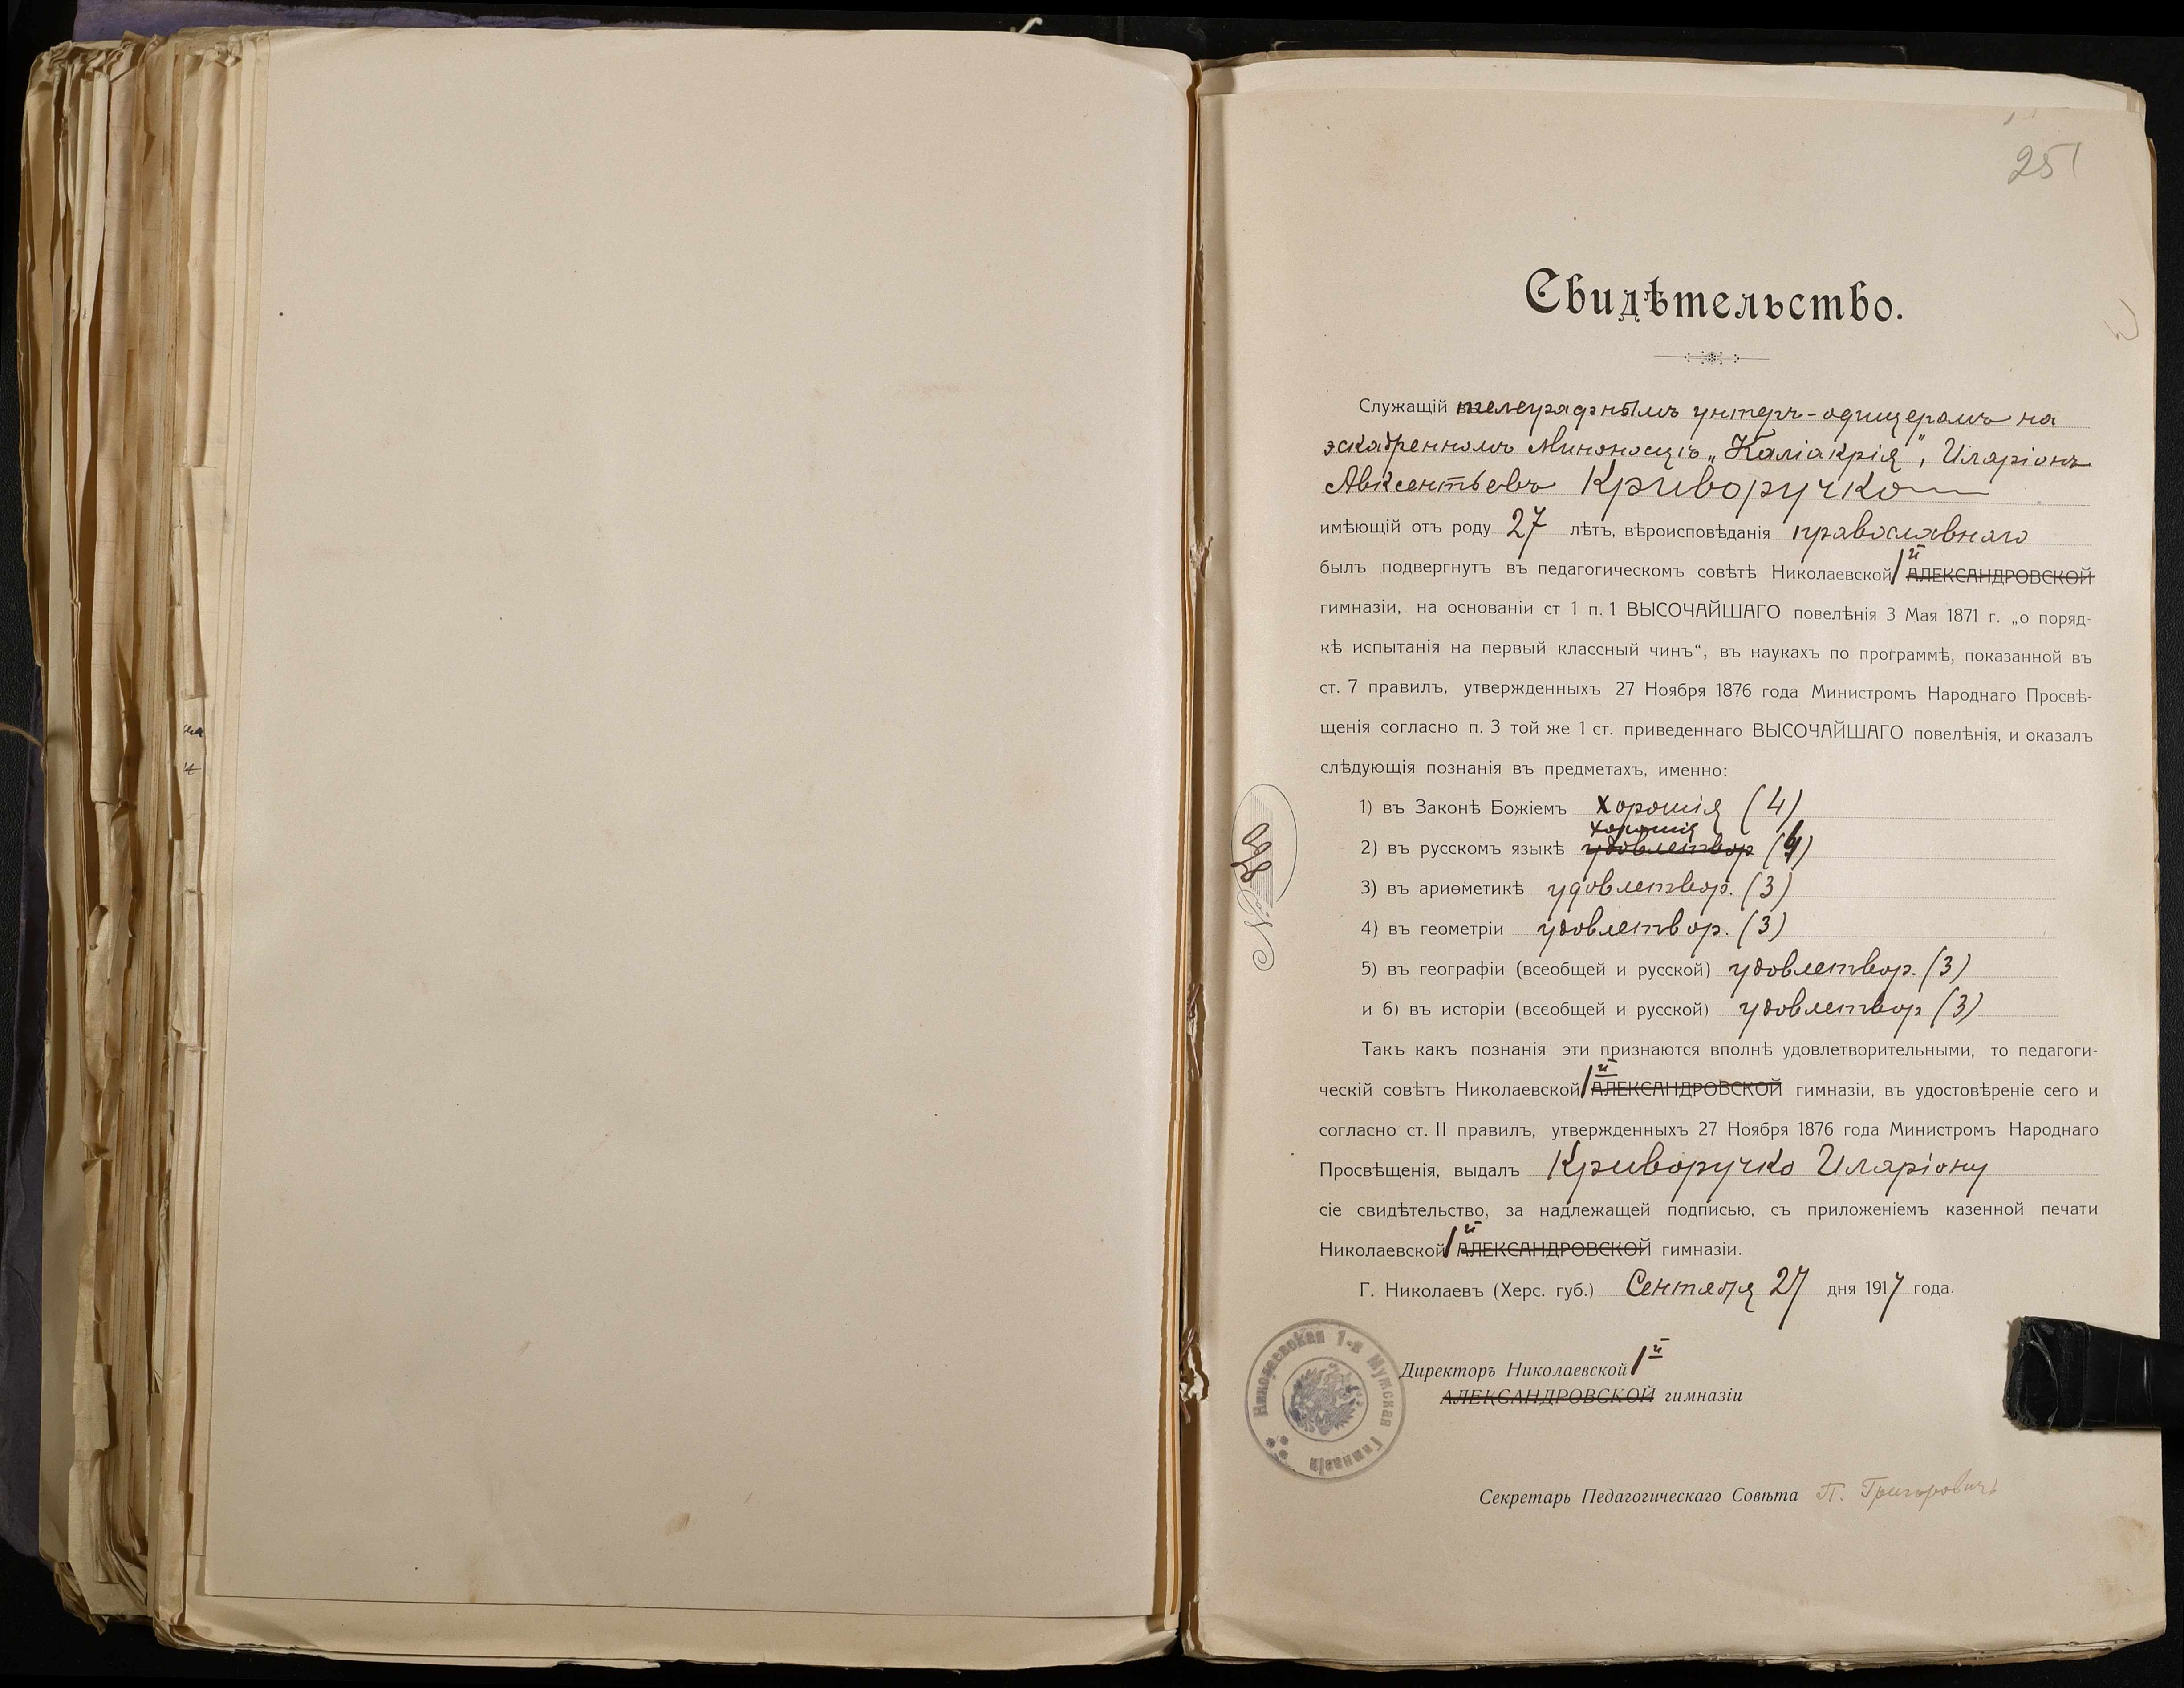 251
Свидѣтельство.
Служащій телеграфнымъ унтеръ-офицеромъ на
эскадренномъ миноносцѣ „Каліакрія", Иларіонъ
Авксентьевъ Криворучко
имѣющій отъ роду 27 лѣтъ, вѣроисповѣданія православнаго
былъ подвергнутъ въ педагогическомъ совѣтѣ Николаевской 1й АЛЕКСАНДРОВСКОЙ
гимназіи, на основаніи ст 1 п. 1 ВЫСОЧАЙШАГО повелѣнія 3 Мая 1871 г. „о поряд-
кѣ испытанія на первый классный чинъ“, въ наукахъ по программѣ, показанной въ
ст. 7 правилъ, утвержденныхъ 27 Ноября 1876 года Министромъ Народнаго Просвѣ-
щенія согласно п. 3 той же 1 ст. приведеннаго ВЫСОЧАЙШАГО повелѣнія, и оказалъ
слѣдующія познанія въ предметахъ, именно:
1) въ Законѣ Божіемъ хорошія (4)
хорошія
2) въ русскомъ языкѣ удовлетвор (4)
3) въ ариѳметикѣ удовлетвор. (3)
4) въ геометріи удовлетвор. (3)
5) въ географіи (всеобщей и русской) удовлетвор. (3)
и 6) въ исторіи (всеобщей и русской) удовлетвор (3)
Такъ какъ познанія эти признаются вполнѣ удовлетворительными, то педагоги-
ческій совѣтъ Николаевской 1й АЛЕКСАНДРОВСКОЙ гимназіи, въ удостовѣреніе сего и
согласно ст. II правилъ, утвержденныхъ 27 Ноября 1876 года Министромъ Народнаго
Просвѣщенія, выдалъ Криворучко Иларіону
сіе свидѣтельство, за надлежащей подписью, съ приложеніемъ казенной печати
Николаевской 1й АЛЕКСАНДРОВСКОЙ гимназіи.
Г. Николаевъ (Херс. губ.) Сентября 27 дня 1917 года.
Директоръ Николаевской 1й
АЛЕКСАНДРОВСКОЙ гимназіи
Секретарь Педагогическаго Совѣта П. Григоровичъ
Николаевская 1-я Мужская Гимназія
№